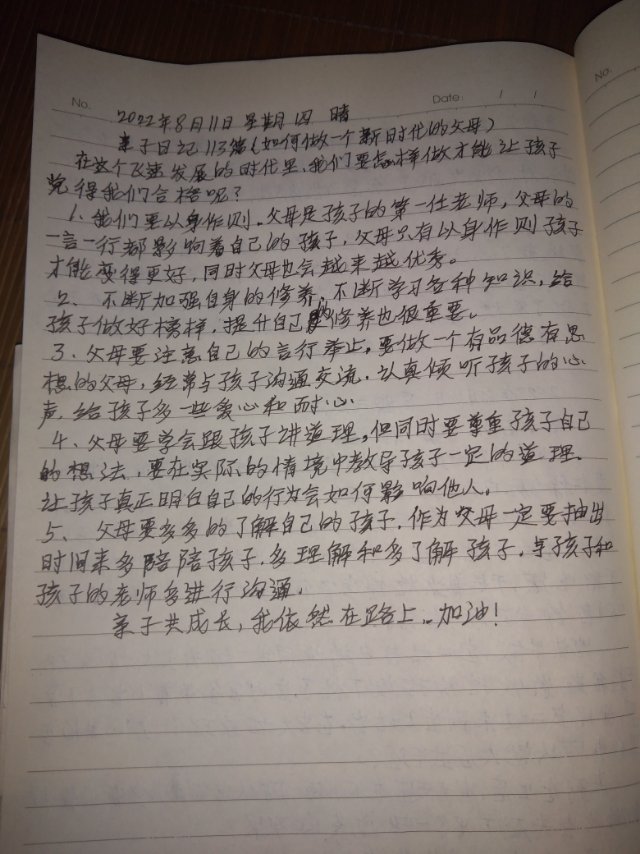 No.
Date / /
No.
2022年8月11日 星期四 晴
亲子日记113篇(如何做一个新时代的父母)
在这个飞速发展的时代里,我们要怎样做才能让孩子
觉得我们合格呢?
1、我们要以身作则,父母是孩子的第一任老师,父母的
一言一行都影响着自己的孩子,父母只有以身作则孩子
才能变得更好,同时父母也会越来越优秀。
2、不断加强自身的修养,不断学习各种知识,给
孩子做好榜样,提升自己的修养也很重要。
3、父母要注意自己的言行举止,要做一个有品德有思
想的父母,经常与孩子沟通交流,认真倾听孩子的心
声,给孩子多一些爱心和耐心。
4、父母要学会跟孩子讲道理,但同时要尊重孩子自己
的想法,要在实际的情境中教导孩子一定的道理,
让孩子真正明白自己的行为会如何影响他人。
5、父母要多多的了解自己的孩子,作为父母一定要抽出
时间来多陪陪孩子,多理解和多了解孩子,与孩子和
孩子的老师多进行沟通。
亲子共成长,我依然在路上..加油!